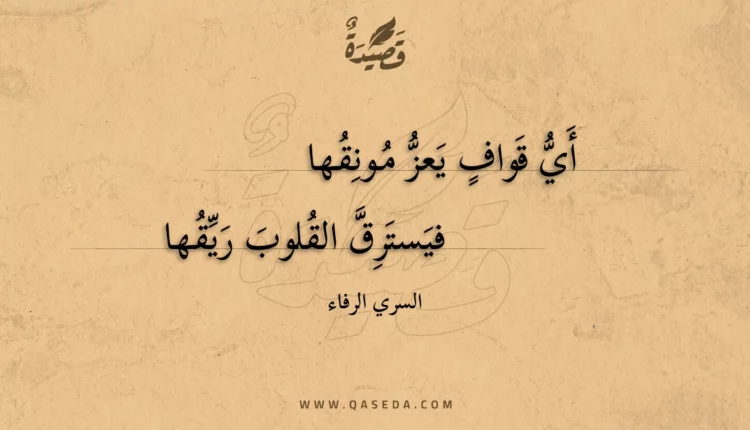 قَصِيْدَةٌ
أَيُّ قَوافٍ يَعزُّ مُونِقُها
فيَستَرِقَّ القُلوبَ رَيِّقُها
السري الرفاء
WWW.QASEDA.COM